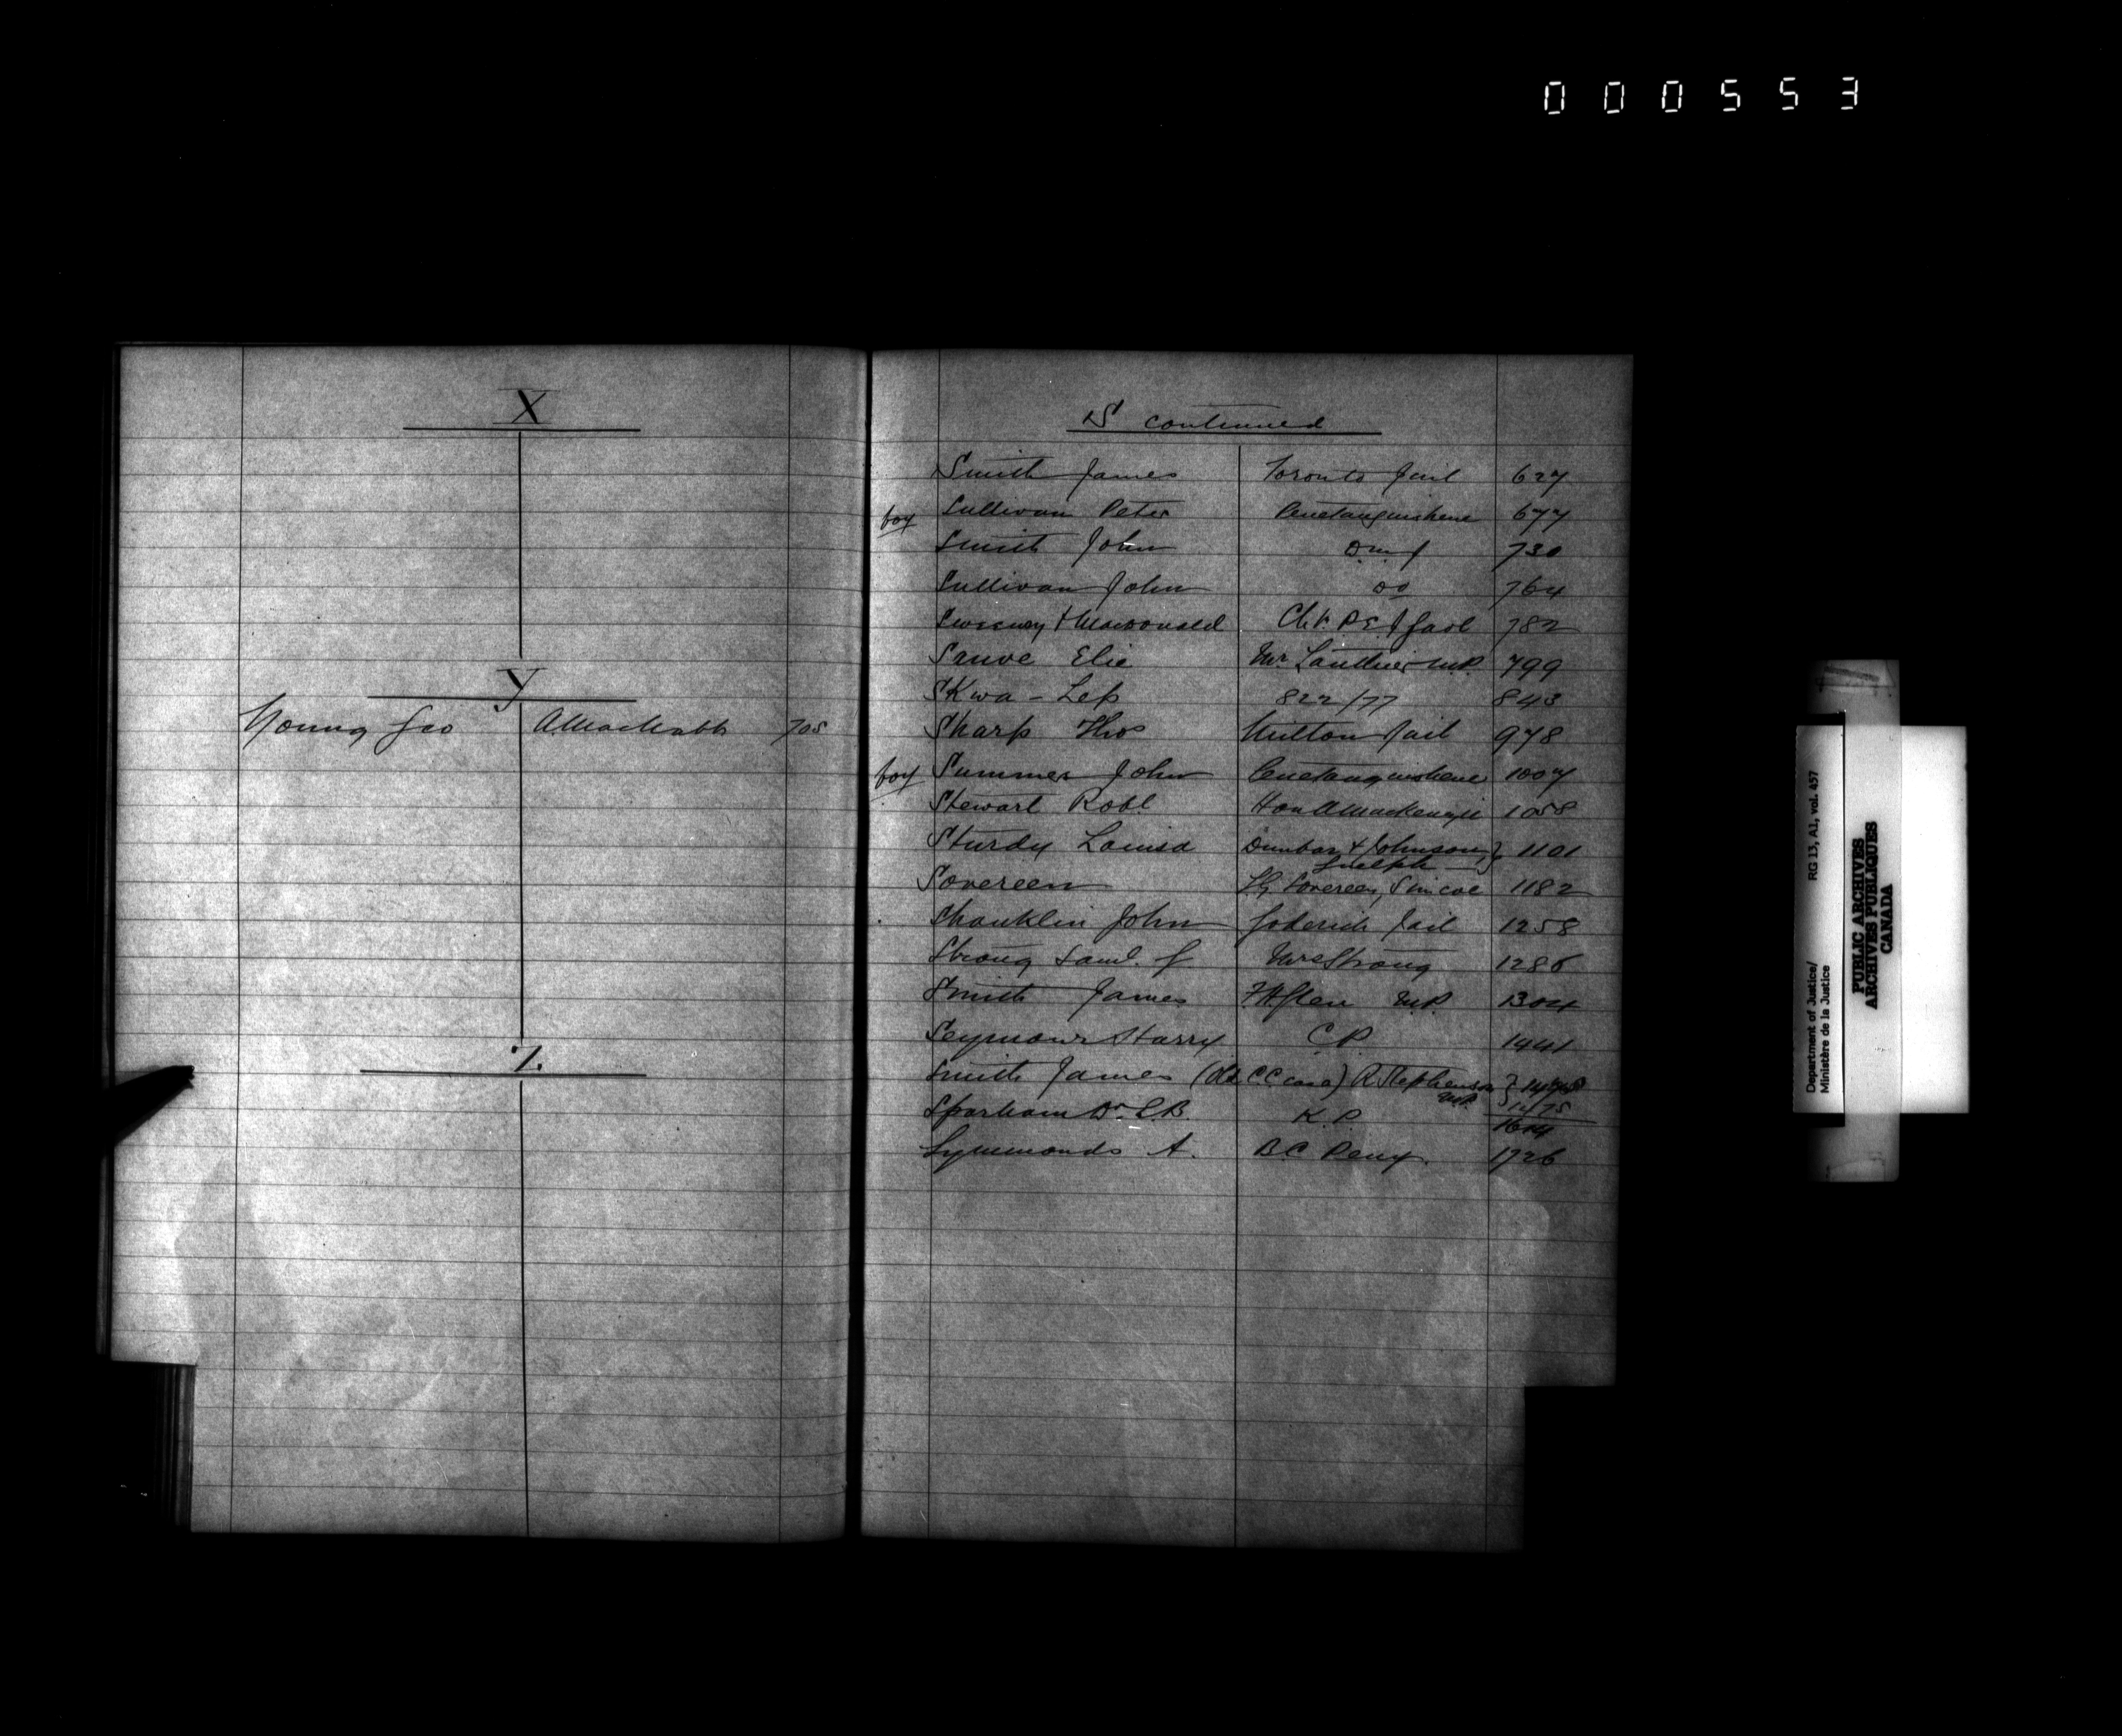 000553
X
Y
Young Geo 705
Z
S continued
Smith James Toronto Jail 627
boy Sullivan Peter Penetanguishene 677
Smith John 730
Sullivan John do 764
Sweeney & Macdonald 782
Sauve Elie Mr. Lanthier M.P. 799
SKwa-Lep 822/77 843
Sharp Thos Milton Jail 978
boy Summer John Penetanguishene 1007
Stewart Robt Hon A Mackenzie 1058
Sturdy Louisa Dunbar & Johnson, } 1101
Guelph
Sovereen Sovereen, Simcoe 1182
Shanklin John Goderich Jail 1258
Strong Saml. J Mrs Strong 1286
Smith James M.P. 1304
Seymour Harry C.P. 1441
Smith James (Old CC case) R Stephenson }
M.P. 11/75
Sparham Dr. C.B. K.P. 1614
Symmonds A. B.C. Peny. 1726
Department of Justice/ RG 13, A1, vol. 457
Ministère de la Justice
PUBLIC ARCHIVES
ARCHIVES PUBLIQUES
CANADA